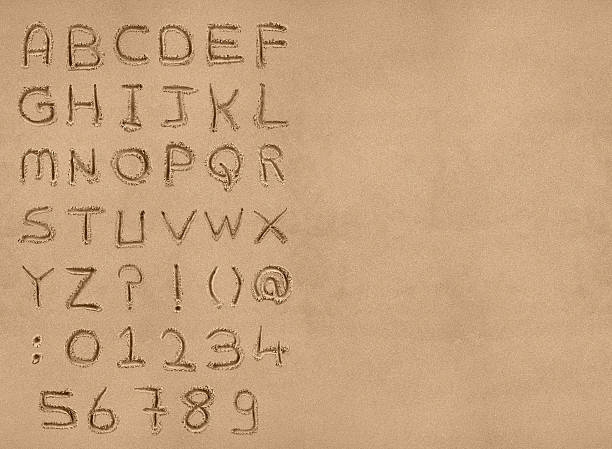 A B C D E F
G H I J K L
m N O P Q R
S T U V W X
Y Z ? ! ( ) @
: 0 1 2 3 4
5 6 7 8 9